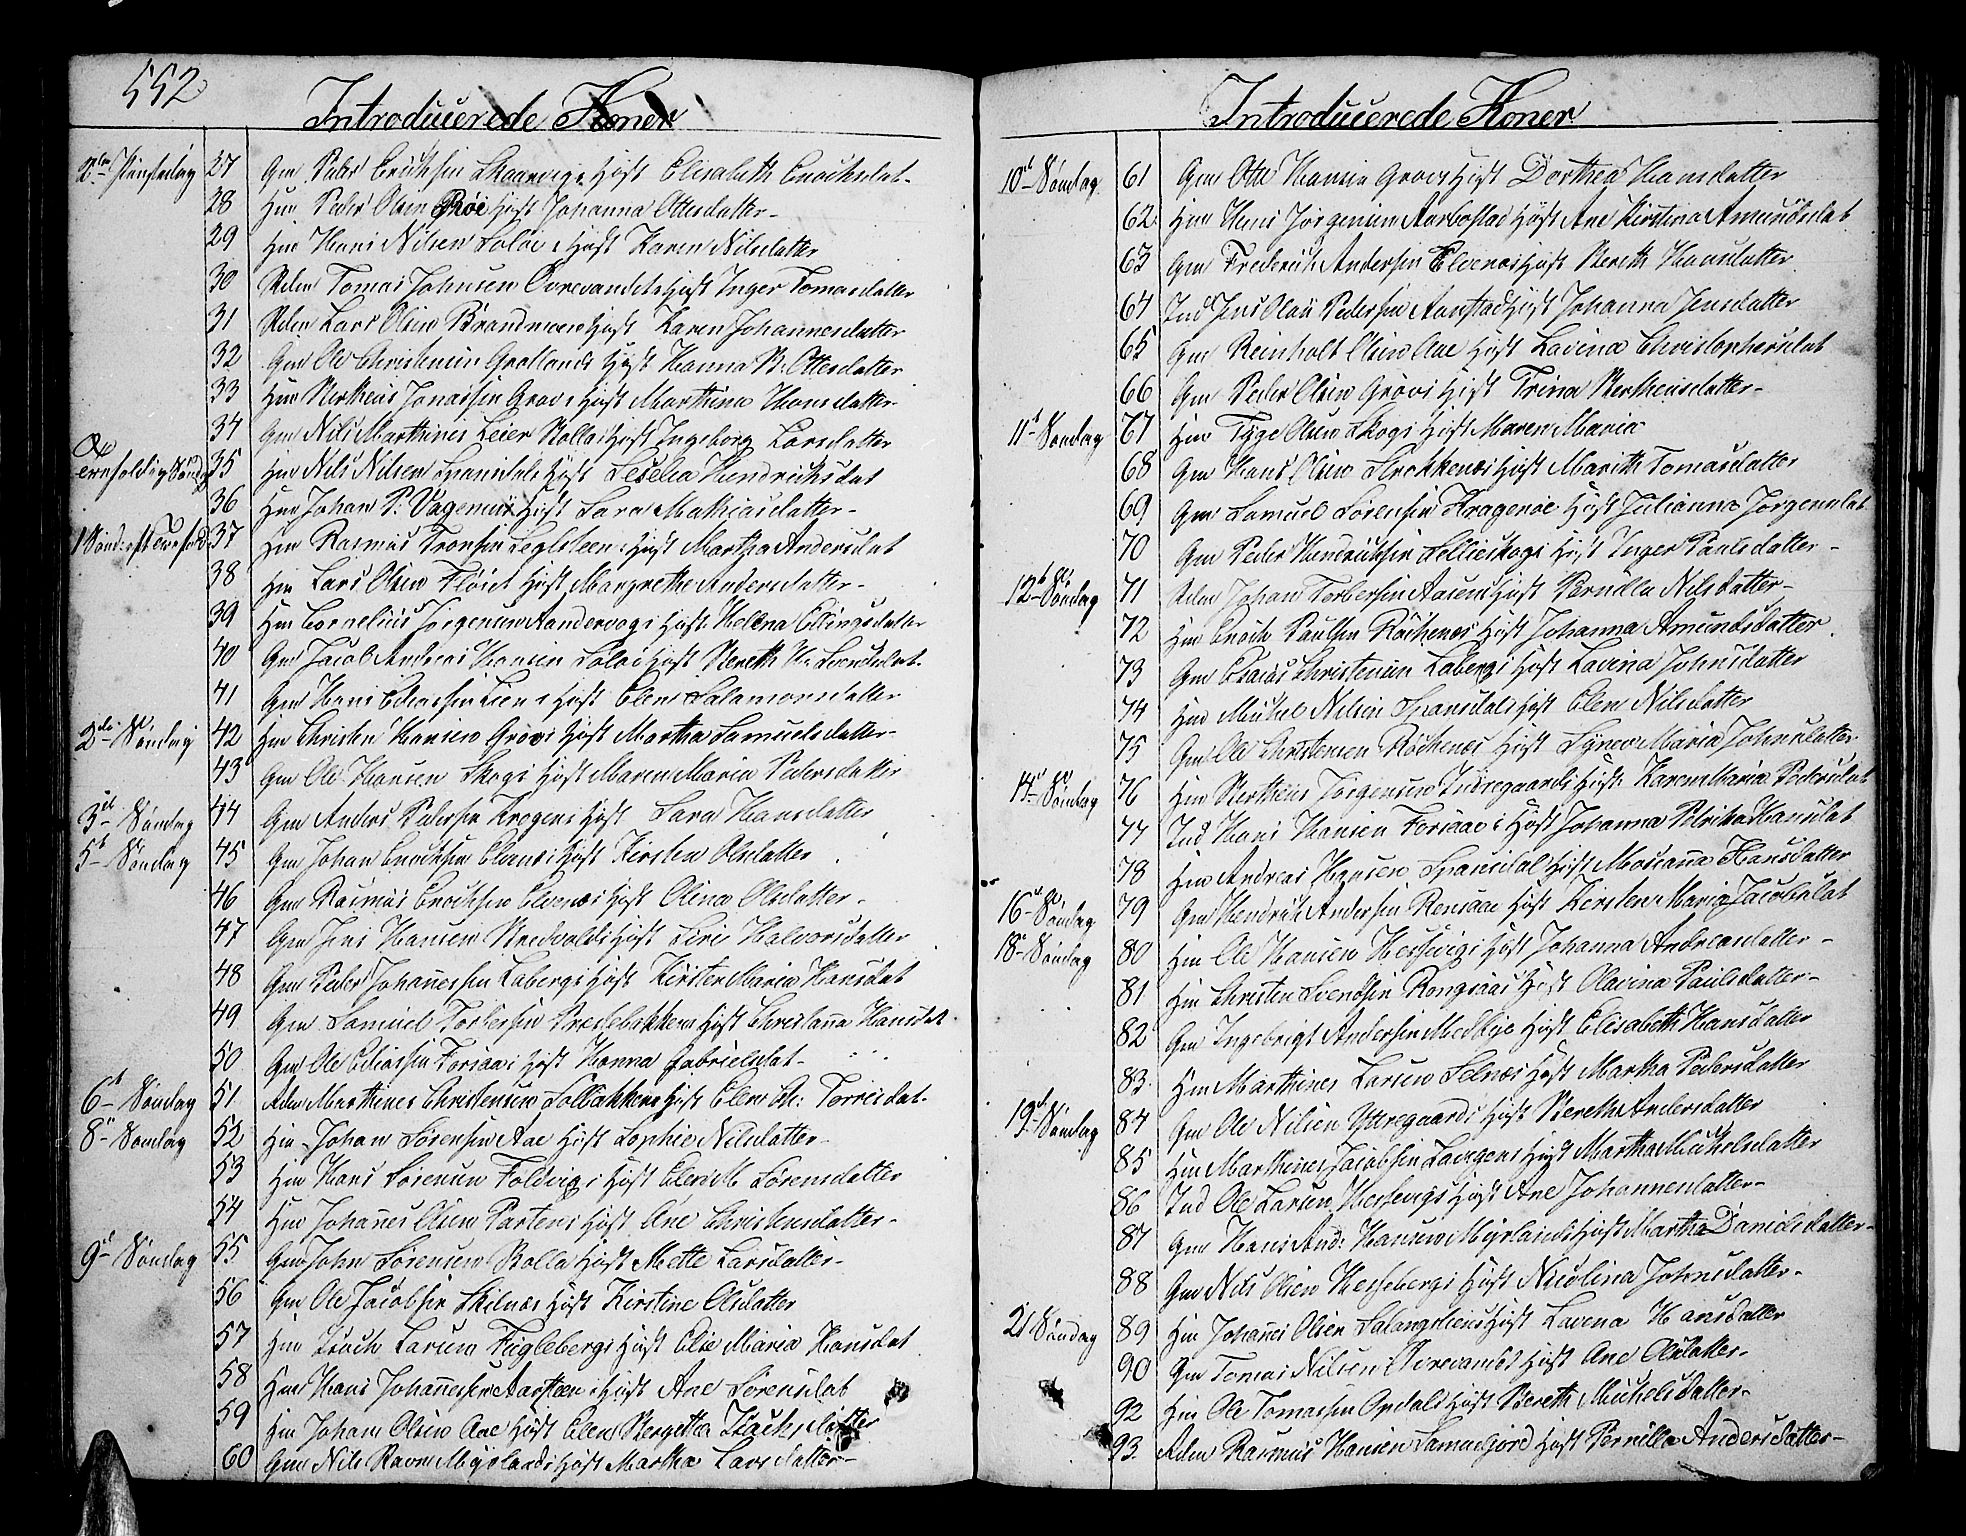 552
Introducerede Koner
2den Pinsedag 27 Gm Peder Enochsen Skaarvigs Hust Elisabeth Enochsdat.
28 Hm Peder Olsen Røe Hust Johanna Ottesdatter
29 Hm Hans Nilsen Soløe Hust Karen Nilsdatter
30 Rdm Tomas Johnsen Øvrevandets Hust Inger Tomasdatter
31 Rdm Lars Olsen Brandmoens Hust Karen Johannesdatter
32 Gm Ole Christensen Grotlands Hust Hanna B. Ottesdatter
33 Hm Bertheus Jonassen Grovs Hust Marthina Hansdatter
34 Gm Nils Marthines Leier Rollas Hust Ingeborg Larsdatter
Trefoldig Søndag 35 Hm Nils Nilsen Spansdals Hust Seselia Hendriksdat
36 Hm Johan P. Hust Sara Mathiasdatter
1 Sønd. eft Trefold 37 Hm Rasmus Tronsen Hust Martha Andersdat
38 Hm Lars Olsen Hust Margrethe Andersdatter
39 Hm Cornelius Jørgensen Aandervogs Hust Helena Ellingsdatter
40 Gm Jacob Andreas Hansen Soløe Hust Bereth H. Svendsdat.
41 Gm Hans Eliassen Liens Hust Elen Salamonsdatter
2den Søndag 42 Hm Christen Hansen Grovs Hust Martha Samuelsdatter
43 Gm Ole Hansen Skogs Hust Maren Maria Pedersdatter
3de Søndag 44 Gm Anders Pedersen Krogens Hust Sara Hansdatter
5te Søndag 45 Gm Johan Enochsen Elvenes Hust Kirsten Olsdatter
46 Gm Rasmus Enochsen Elvenes Hust Olina Olsdatter
47 Gm Jens Hansen Bredvolds Hust Siri Halvorsdatter
48 Gm Peder Johannessen Labergs Hust Kirsten Maria Hansdat
49 Gm Samuel Torbersen Prestebakkens Hust Christianna Hansdat
50 Gm Ole Eliassen Forsaas Hust Hanna Gabrielsdat
6te Søndag 51 Rdm Marthines Christensen Solbakkens Hust Elen Ch: Torrisdat.
8de Søndag 52 Hm Johan Sørensen Aae Hust Sophie Nilsdatter
53 Hm Hans Sørensen Foldvigs Hust Elen M Sørensdatter
54 Hm Johannes Olsen Hust Ane Christensdatter
9de Søndag 55 Gm John Sørensen Rolla Hust Mette Larsdatter
56 Gm Ole Jacobsen Skilnæs Hust Kirstine Olsdatter
57 Hm Isach Larsen Fuglebergs Hust Else Maria Hansdat
58 Hm Hans Johannessen Aarsteens Hust Ane Sørensdat
59 Hm Johan Olsen Aae Hust Elen Bergetta Isachsdatter
60 Gm Nils Ravn Myrlands Hust Martha Larsdatter
Introducerede Koner
10de Søndag 61 Gm Otte Hansen Grovs Hust Dorthea Hansdatter
62 Hm Hans Jørgensen Aarbostad Hust Ane Kirstina Amundsdat
63 Gm Frederich Andersen Elvenes Hust Bereth Hansdatter
64 Ind Jens Oläi Pedersen Aanstad Hust Johanna Jensdatter
65 Gm Reinholt Olsen Aae Hust Lavina Christophersdat
66 Gm Peder Olsen Grovs Hust Trina Bertheusdatter
11te Søndag 67 Hm Tyge Olsen Skogs Hust Maren Maria
68 Gm Hans Olsen Strokkenæs Hust Marith Tomasdatter
69 Gm Samuel Sørensen Kragenæe Hust Julianna Jørgensdat
70 Gm Peder Hendriksen Sollieskogs Hust Inger Paulsdatter
12te Søndag 71 Rdm Johan Torbersen Aasens Hust Pernilla Nilsdatter
72 Hm Enoch Paulsen Røchenes Hust Johanna Amundsdatter
73 Gm Esaias Christensen Labergs Hust Lavina Johnsdatter
74 Hm Michel Nilsen Spansdals Hust Elen Nilsdatter
75 Gm Ole Christensen Røchenes Hust Synev Maria Johnsdatter
14de Søndag 76 Hm Bertheus Jørgensen Indregaards Hust Karen Maria Pedersdat
77 Ind Hans Hansen Forsaaes Hust Johanna Petrika Hansdat
78 Hm Andreas Hansen Spansdal Hust Mosianna Hansdatter
16de Søndag 79 Gm Hendrik Andersen Rensaae Hust Kirsten Maria Jacobsdat
18de Søndag 80 Hm Ole Hansen Hessevigs Hust Johanna Andreasdatter
81 Hm Christen Svendsen Rongsaas Hust Olavina Paulsdatter
82 Gm Ingebrigt Andersen Medbye Hust Elisabeth Hansdatter
83 Hm Marthines Larsen Selnæs Hust Martha Pedersdatter
19de Søndag 84 Gm Ole Nilsen Yttregaards Hust Bereth Andersdatter
85 Hm Marthines Jacobsen Lavgens Hust Martha Michelsdatter
86 Ind Ole Larsen Hessevigs Hust Ane Johannesdatter
87 Gm Hans And: Hansen Myrlands Hust Martha Danielsdatter
88 Gm Nils Olsen Hessebergs Hust Nicolina Johnsdatter
21 Søndag 89 Hm Johannes Olsen Salangsliens Hust Lavina Hansdatter
90 Gm Tomas Nilsen Øvrevandet Hust Ane Olsdatter
92 Hm Ole Tomassen Opdals Hust Bereth Michelsdatter
93. Rdm Rasmus Hansen Samuelgjord Hust Pernilla Andersdatter